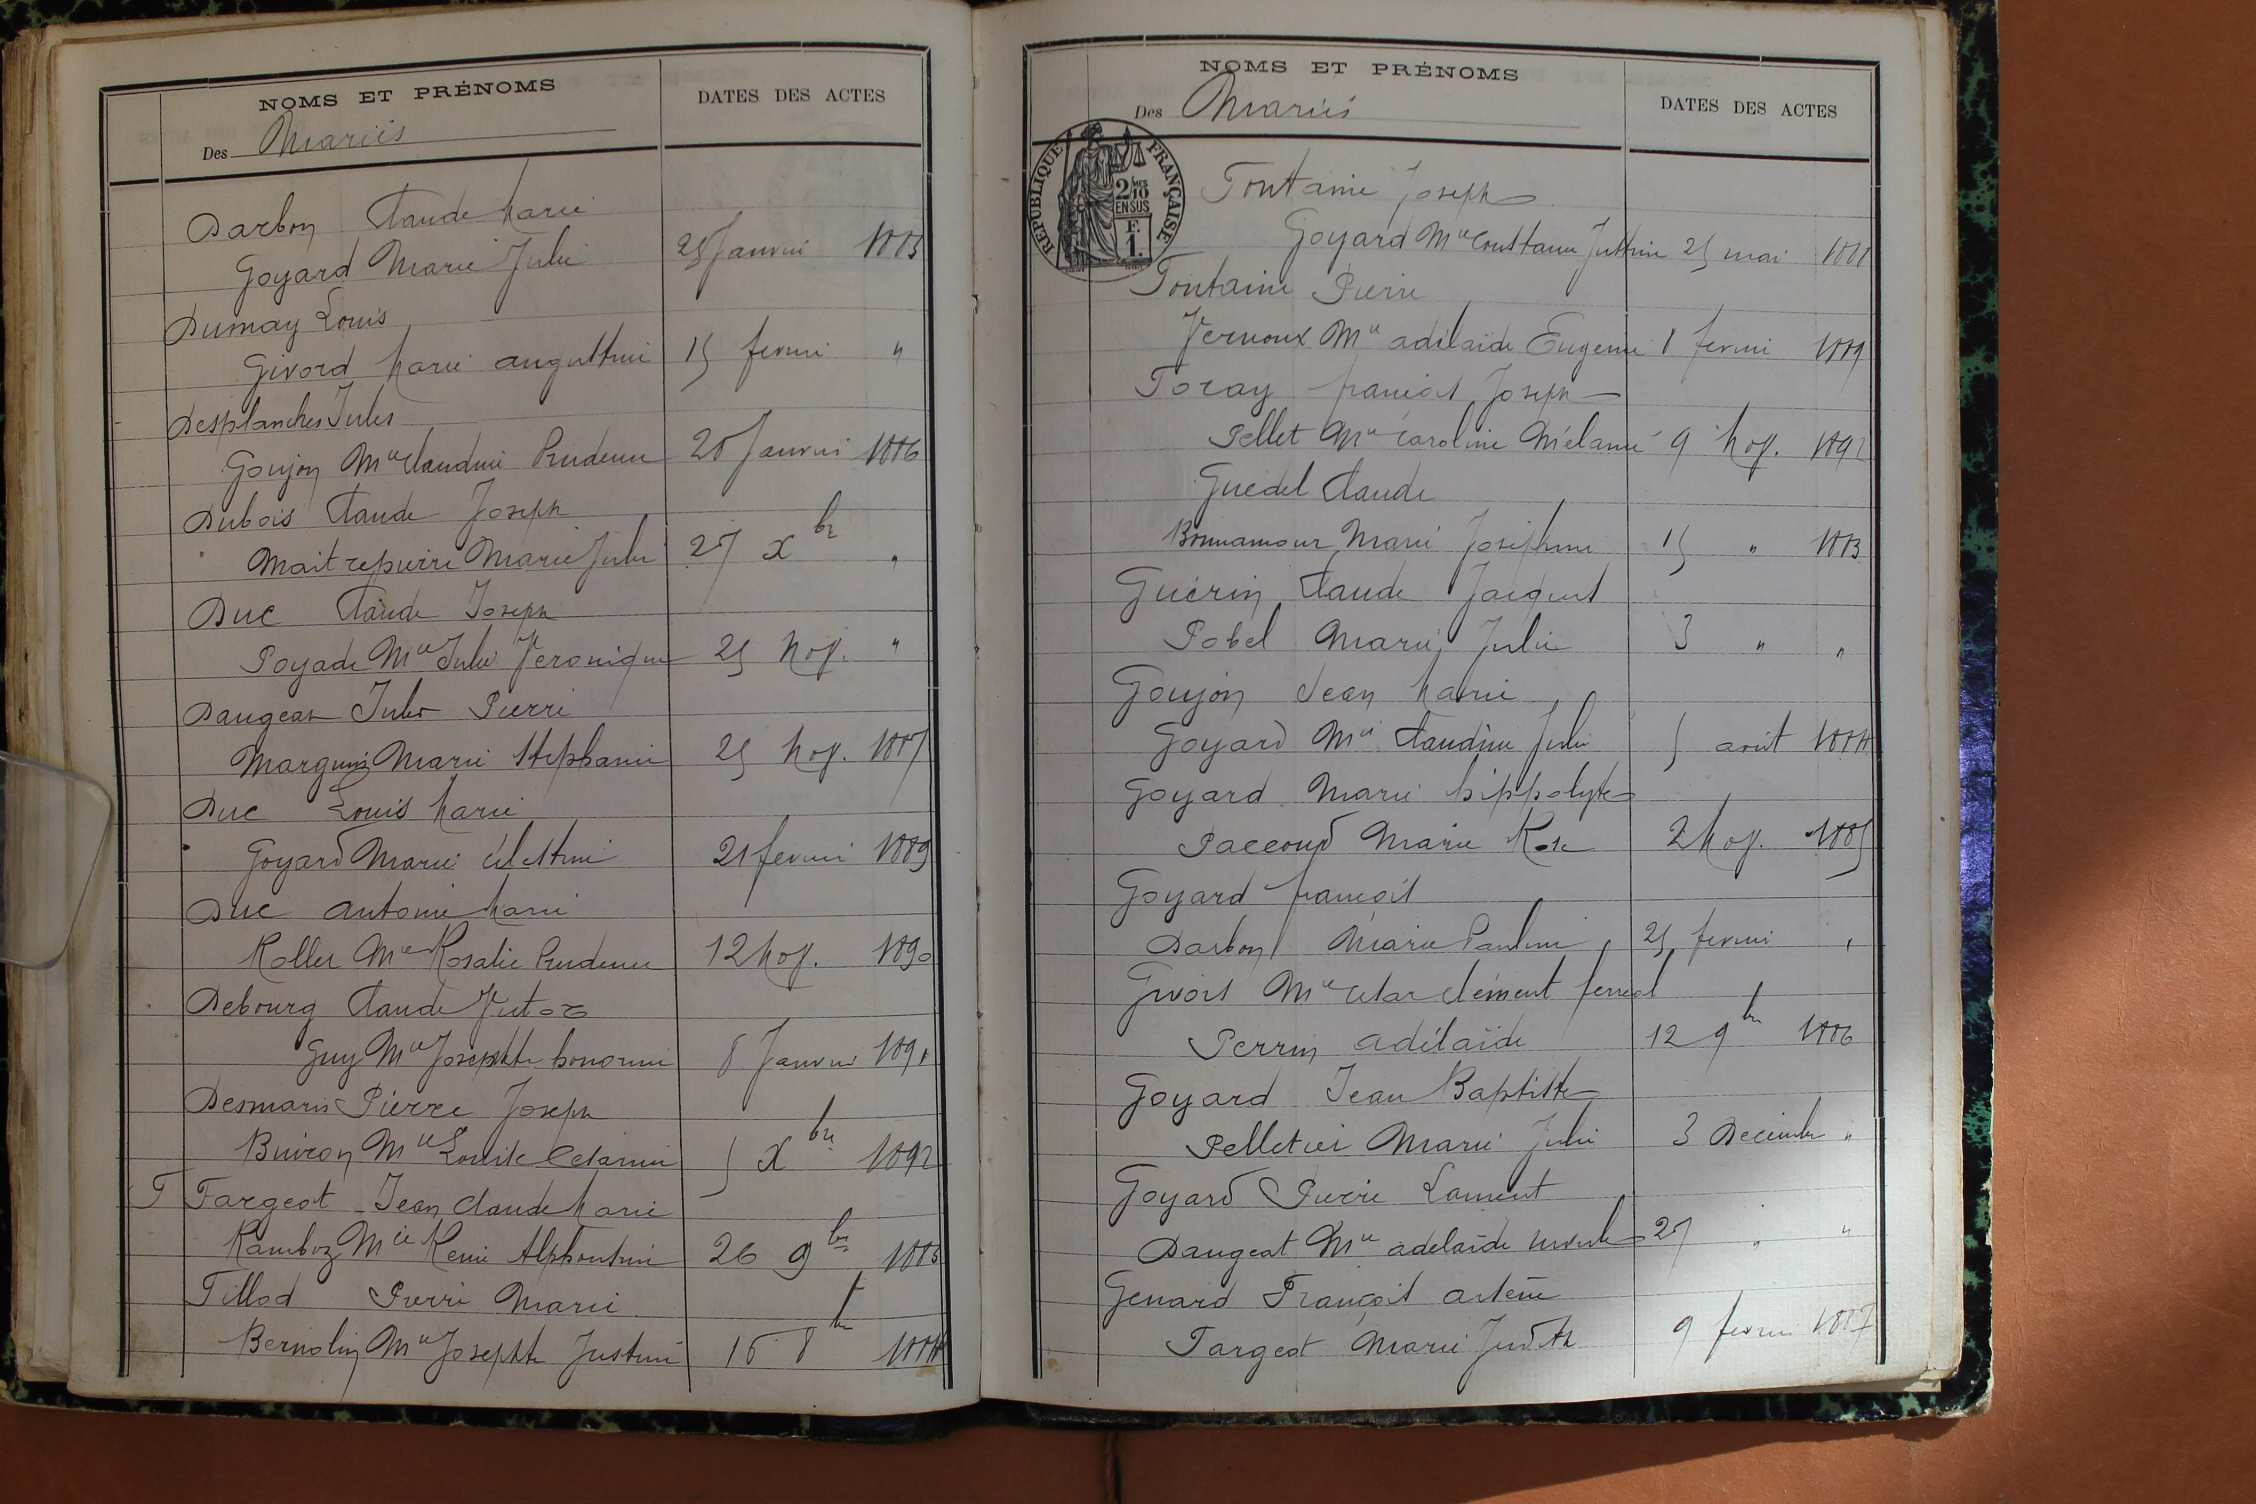 NOMS ET PRÉNOMS
DATES DES ACTES
Des Mariés
Darbon Claude Marie
Goyard Marie Julie 25 Janvier 1885
Dumay Louis
Givord Marie augustine 15 fevrier "
Desplanches Jules
Goujon Mie Claudine Prudence 28 Janvier 1886
Dubois Claude Joseph
Maitrepierre Marie Julie 27 Xbre "
Duc Claude Joseph
Poyade Mie Julie Veronique 25 Nov. "
Daugeat Jules Pierre
Marguin Marie Stephanie 25 Nov. 1887
Duc Louis Marie
Goyard Marie célestine 21 fevrier 1889
Duc antoine Marie
Roller Mie Rosalie Prudence 12 Nov. 1890
Debourg Claude Victor
Guy Mie Josephte honorine 8 Janvier 1891
Desmaris Pierre Joseph
Buiron Mie Louise 5 Xbre 1892
F Fargeot Jean Claude Marie
Ramboz Mie Renée Alphonsine 26 9bre 1883
Fillod Pierre Marie
Bernolin Mie Josephte Justine 16 8bre 1884
NOMS ET PRÉNOMS
Des Mariés
DATES DES ACTES
RÉPUBLIQUE FRANÇAISE
2/10
EN SUS
F.
1.
Fontaine Joseph
Goyard Mie Constance Justine 25 mai 1888
Fontaine Pierre
Vernoux Mie adélaïde Eugenie 8 fevrier 1889
Foray françois Joseph
Pellet Mie Caroline Mélanie 9 Nov. 1892
Guédel Claude
Bonnamour Marie Josephine 15 " 1883
Guérin Claude Jacques
Pobel Marie Julie 3 " "
Goujon Jean Marie
Goyard Mie Claudine Julie 5 août 1884
Goyard Marie hippolyte
Paccoud Marie Rose 2 Nov. 1885
Goyard françois
Darbon Marie Pauline 25 fevrier "
Mie clément ferréol
Perrin adélaïde 12 9bre 1886
Goyard Jean Baptiste
Pelletier Marie Julie 3 Décembre "
Goyard Pierre Laurent
Daugeat Mie adelaïde 27 " "
Genard François
Fargeot Marie Judith 9 fevrier 1887